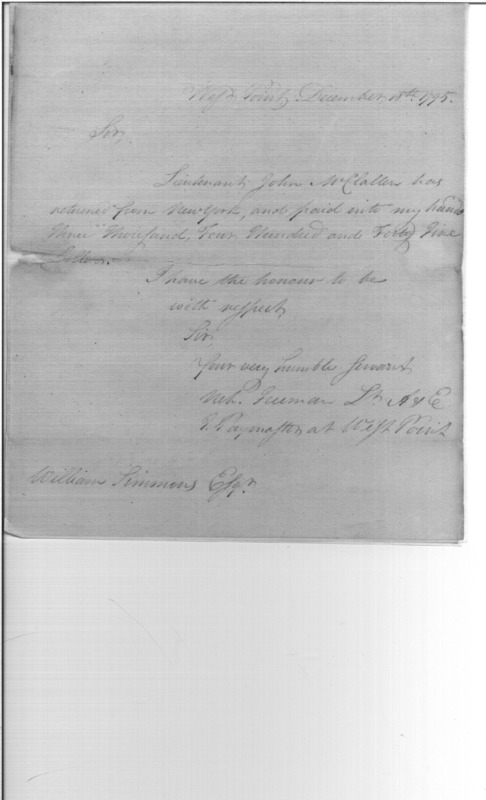 West Point, December 18th 1795.
Sir,
Lieutenant John McClallen has
returned from New York, and paid into my hands
Three Thousand, Four Hundred and Forty Nine
Dollars.
I have the honour to be
with respect
Sir
Your very humble Servant
Neh. Freeman Lt A & E
Paymaster at West Point
William Simmons Esqr.